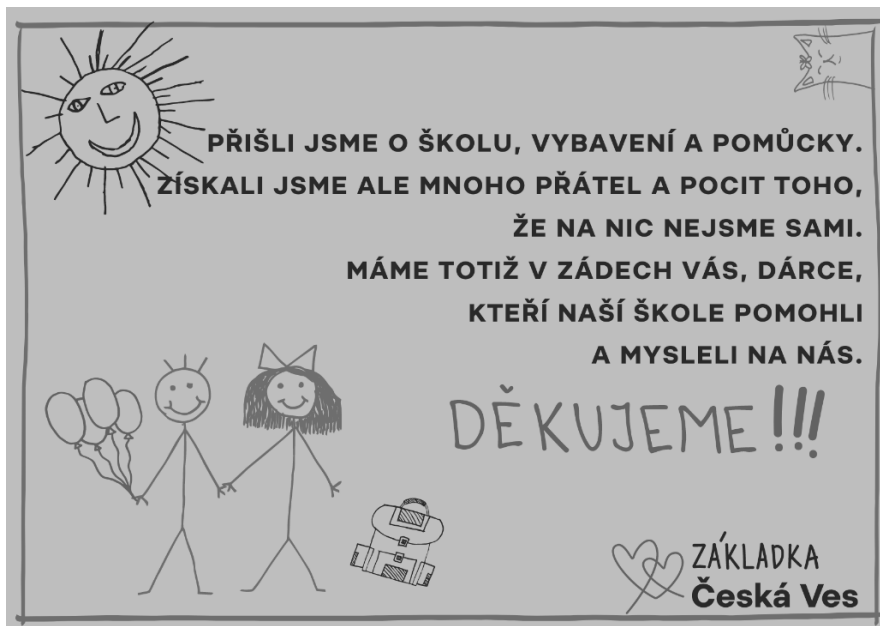 PŘIŠLI JSME O ŠKOLU, VYBAVENÍ A POMŮCKY.
ZÍSKALI JSME ALE MNOHO PŘÁTEL A POCIT TOHO,
ŽE NA NIC NEJSME SAMI.
MÁME TOTIŽ V ZÁDECH VÁS, DÁRCE,
KTEŘÍ NAŠÍ ŠKOLE POMOHLI
A MYSLELI NA NÁS.
DĚKUJEME!!!
ZÁKLADKA
Česká Ves